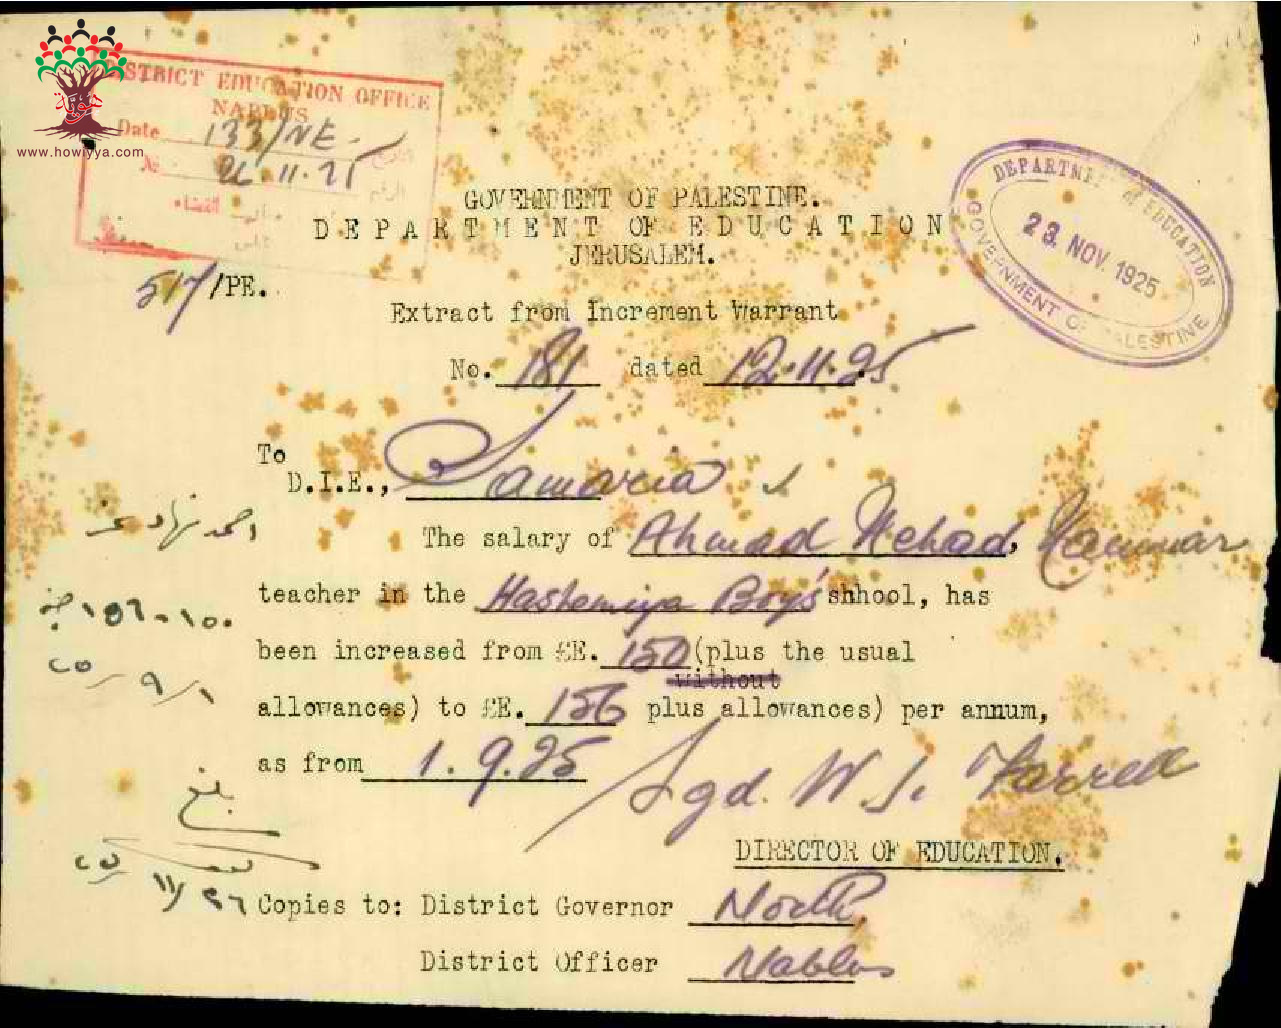 DISTRICT EDUCATION OFFICE
NABLUS
Date 133/NE.
№ 26.11.25
هوية
www.howiyya.com
DEPARTMENT of EDUCATION
23. NOV. 1925
GOVERNMENT OF PALESTINE
GOVERNMENT OF PALESTINE.
DEPARTMENT OF EDUCATION
JERUSALEM.
517/PE.
Extract from Increment Warrant
No. 181 dated 12.11.25
To
D.I.E., Samaria
The salary of Ahmad Nehad,
احمد نهاد
teacher in the Hashemiya Boy's shhool, has
١٥٦-١٥٠
been increased from £E. 150 (plus the usual
٢٥/٩/١
without
allowances) to £E. 156 plus allowances) per annum,
as from 1.9.25
Sgd. W. J. Farrell
بلغ
DIRECTOR OF EDUCATION.
٢٥/١١/٢٦
Copies to: District Governor North,
District Officer Nablus